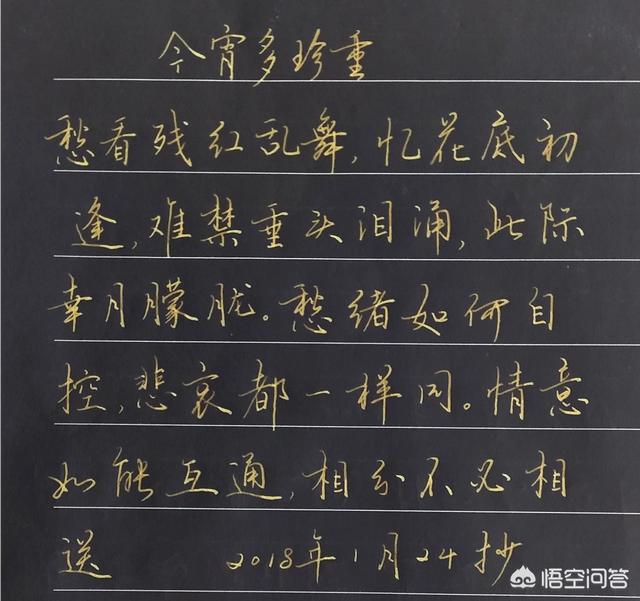 今宵多珍重
愁看残红乱舞,忆花底初
逢,难禁垂头泪涌,此际
幸月朦胧。愁绪如何自
控,悲哀都一样同。情意
如能互通,相分不必相
送 2018年1月24抄
悟空问答